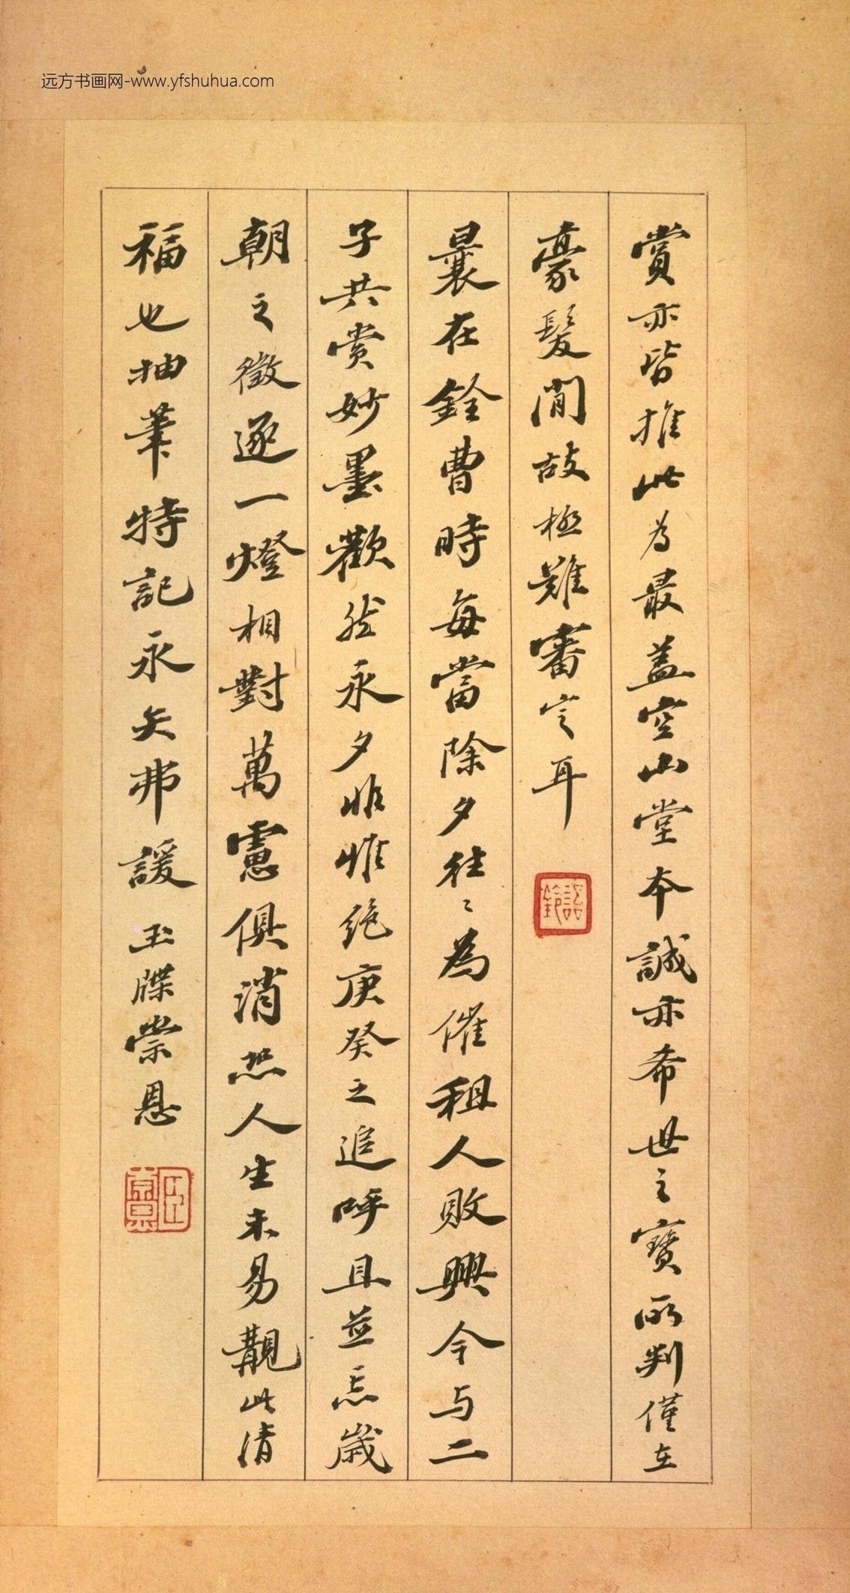 远方书画网-www.yfshuhua.com
賞亦皆推此為最盖空山堂本誠亦希世之寶所判僅在
豪髮間故極難審定耳
曩在銓曹時每當除夕往〻為催租人敗興今与二
子共賞妙墨歡然永夕非惟絶庚癸之追呼且並忘歲
朝之徵逐一燈相對萬慮俱消恐人生未易覯此清
福也抽筆特記永矢弗諼玉牒崇恩